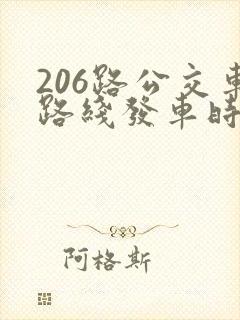 206路公交車
路綫發車時
阿格斯